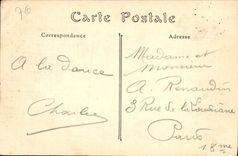 76
Carte Postale
Correspondance
Adresse
A la dance
Charles
Madame et
Monsieur
A. Renaudin
3 Rue de la Louisiane
Paris
18me